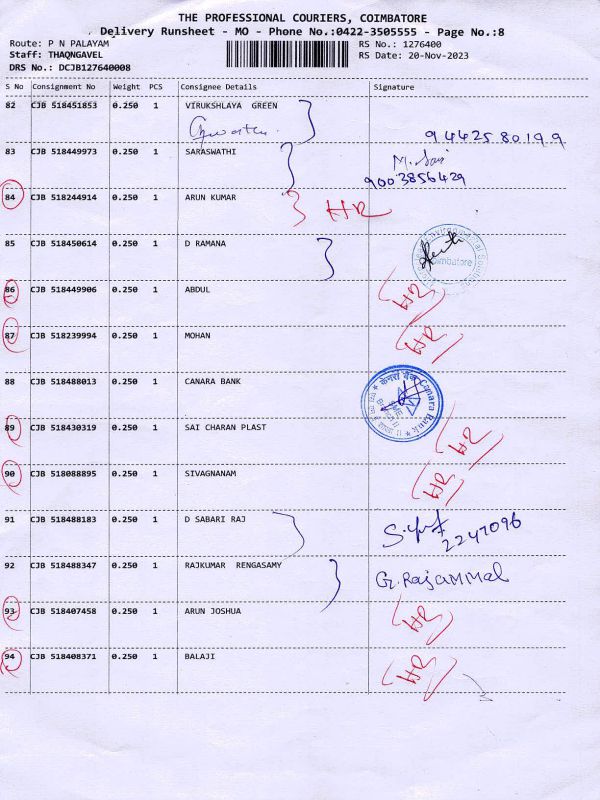 THE PROFESSIONAL COURIERS, COIMBATORE
Delivery Runsheet - MO - Phone No.:0422-3505555 - Page No.:8
Route: P N PALAYAM RS No.: 1276400
Staff: THAQNGAVEL RS Date: 20-Nov-2023
DRS No.: DCJB127640008
S No Consignment No Weight PCS Consignee Details Signature
82 CJB 518451853 0.250 1 VIRUKSHLAYA GREEN
94425 80199
83 CJB 518449973 0.250 1 SARASWATHI
9003856429
84 CJB 518244914 0.250 1 ARUN KUMAR HR
85 CJB 518450614 0.250 1 D RAMANA
Coimbatore
86 CJB 518449906 0.250 1 ABDUL HR
87 CJB 518239994 0.250 1 MOHAN HR
88 CJB 518488013 0.250 1 CANARA BANK
केनरा बैंक Canara Bank
89 CJB 518430319 0.250 1 SAI CHARAN PLAST HR
90 CJB 518088895 0.250 1 SIVAGNANAM HR
91 CJB 518488183 0.250 1 D SABARI RAJ
2247096
92 CJB 518488347 0.250 1 RAJKUMAR RENGASAMY G. RajaMMal
93 CJB 518407458 0.250 1 ARUN JOSHUA HR
94 CJB 518408371 0.250 1 BALAJI HR